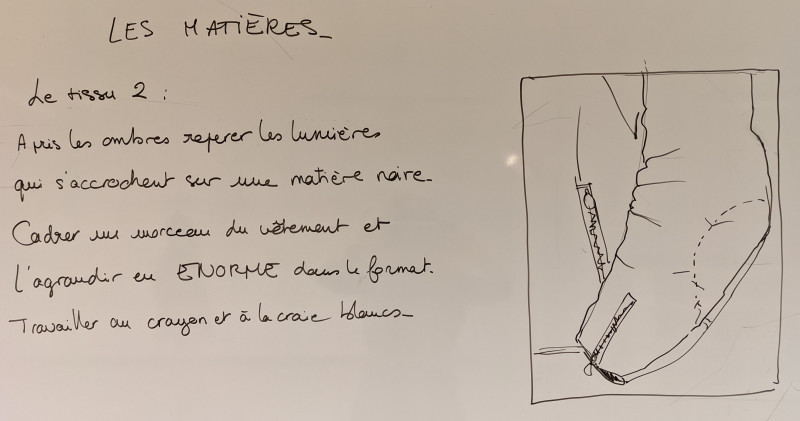 LES MATIÈRES_
Le tissu 2 :
Apris les ombres reperer les lumières
qui s'accrochent sur une matière noire_
Cadrer un morceau du vêtement et
l'agrandir en ENORME dans le format.
Travailler au crayon et à la craie blancs_